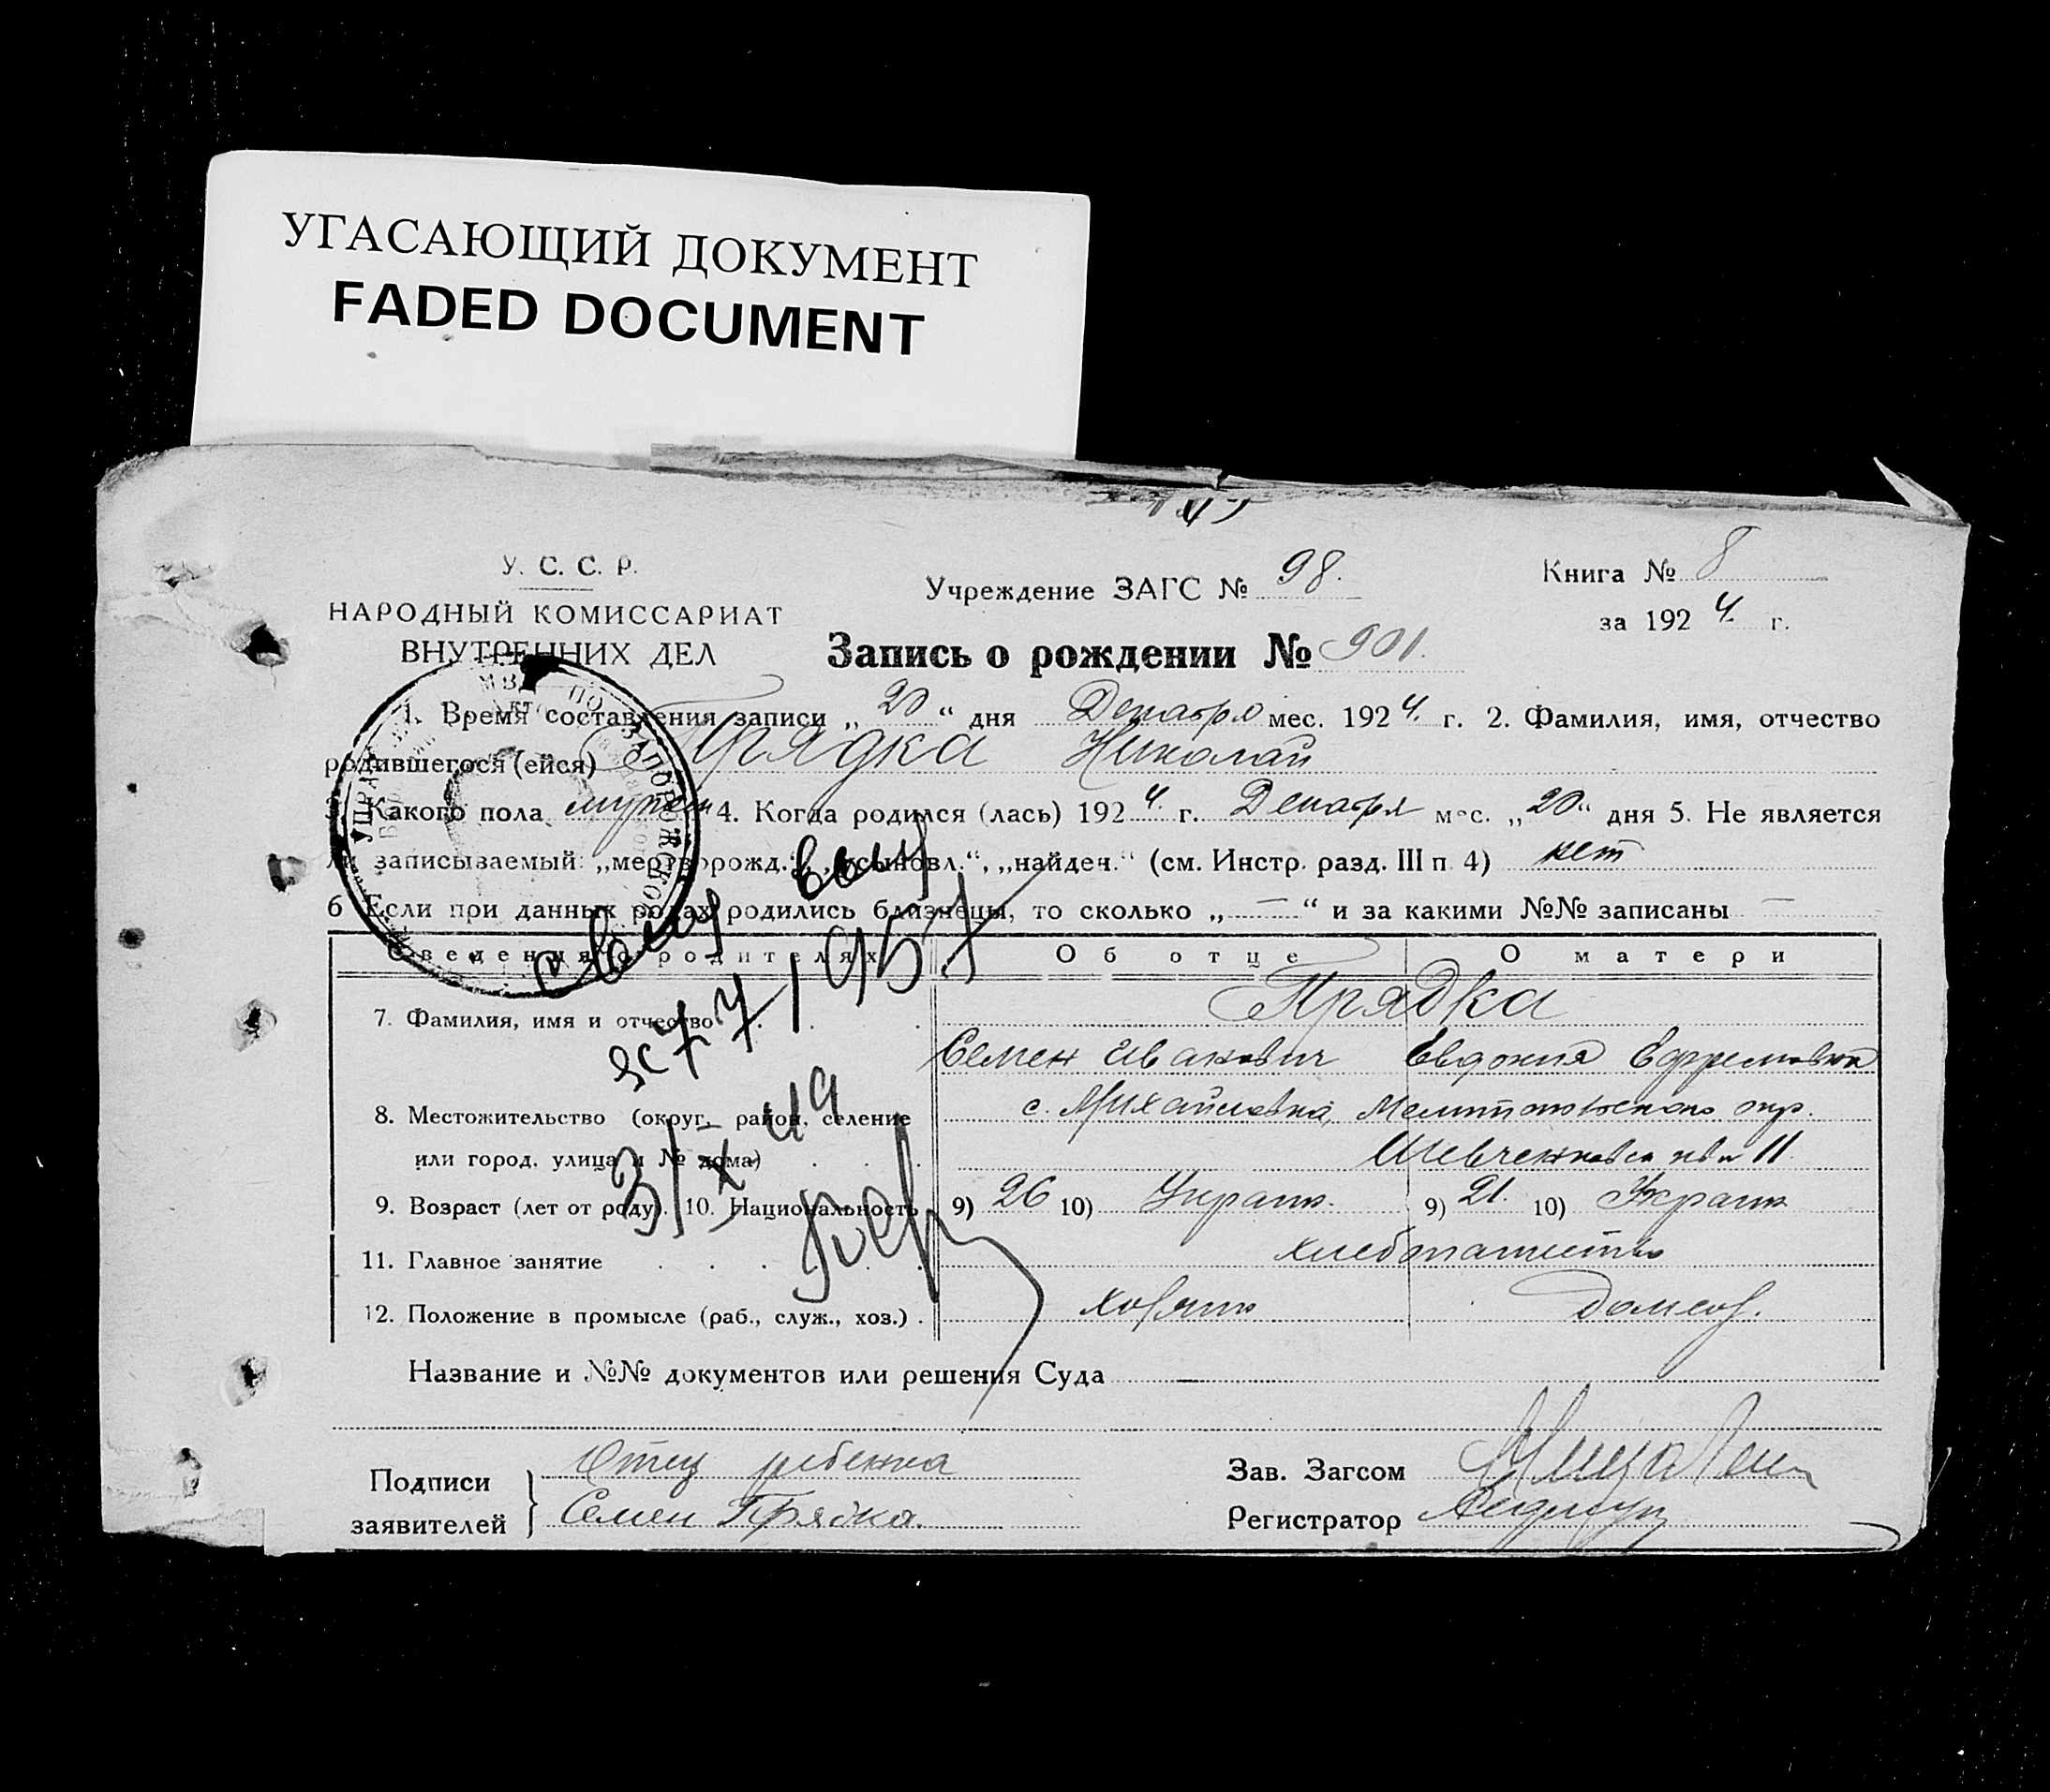 УГАСАЮЩИЙ ДОКУМЕНТ
FADED DOCUMENT
У. С. С. Р.
НАРОДНЫЙ КОМИССАРИАТ
ВНУТРЕННИХ ДЕЛ
Учреждение ЗАГС № 98.
Книга № 8
за 1924 г.
Запись о рождении № 901.
1. Время составления записи „20“ дня Декабря мес. 1924. г. 2. Фамилия, имя, отчество
родившегося (ейся) Прядка Николай
3. Какого пола мужск 4. Когда родился (лась) 1924. г. Декабря мес. „20“ дня 5. Не является
ли записываемый: „мертворожд.“, „усыновл.“, „найден.“ (см. Инстр. разд. III п. 4) нет
6 Если при данных родах родились близнецы, то сколько „—“ и за какими №№ записаны —
Сведения о родителях Об отце О матери
7. Фамилия, имя и отчество Прядка
Семен Иванович Евдокия Ефремовна
8. Местожительство (округ, район, селение с. Михайловка, Мелитопольского окр.
или город, улица и № дома) 11
9. Возраст (лет от роду). 10. Национальность 9) 26 10) Украин. 9) 21. 10) Украин
11. Главное занятие хлебопашество
12. Положение в промысле (раб., служ., хоз.) хозяин домхоз.
Название и №№ документов или решения Суда —
Подписи заявителей Отец ребенка
Семен Прядка.
Зав. Загсом
Регистратор
УПРАВ МВД ПО ЗАПОРОЖСКОЙ